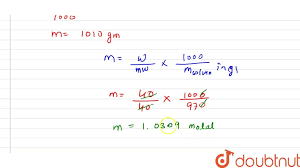 1000
m = 1010 gm
m = W/mw × 1000/m solven in g1
m = 40/40 × 1000/970
m = 1.0309 molal
doubtnut